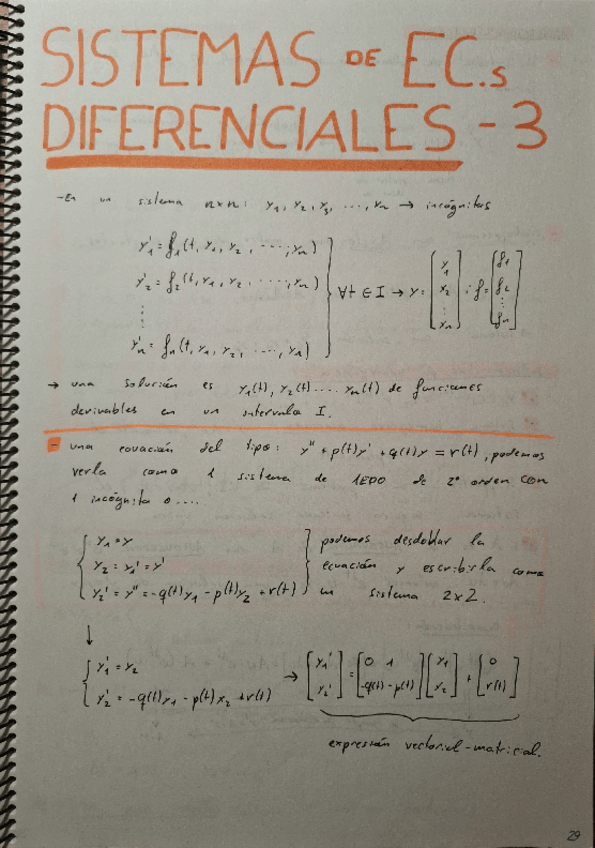 SISTEMAS DE EC.s
DIFERENCIALES - 3
- En un sistema nxn: y₁, y₂, y₃, ..., yₙ → incógnitas
y'₁ = f₁(t, y₁, y₂, ..., yₙ)
y'₂ = f₂(t, y₁, y₂, ..., yₙ)
⋮
y'ₙ = fₙ(t, y₁, y₂, ..., yₙ)
∀t ∈ I → y = [y₁ y₂ ⋮ yₙ] ; f = [f₁ f₂ ⋮ fₙ]
→ una solución es y₁(t), y₂(t) .... yₙ(t) de funciones
derivables en un intervalo I.
- una ecuación del tipo: y'' + p(t)y' + q(t)y = r(t), podemos
verla como 1 sistema de 1EDO de 2º orden con
1 incógnita o ....
{ y₁ = y
y₂ = y₁' = y'
y₂' = y'' = -q(t)y₁ - p(t)y₂ + r(t) }
podemos desdoblar la
ecuación y escribirla como
un sistema 2x2.
↓
{ y₁' = y₂
y₂' = -q(t)y₁ - p(t)y₂ + r(t)
→ [y₁' y₂'] = [0 1 -q(t) -p(t)] [y₁ y₂] + [0 r(t)]
expresión vectorial-matricial.
29